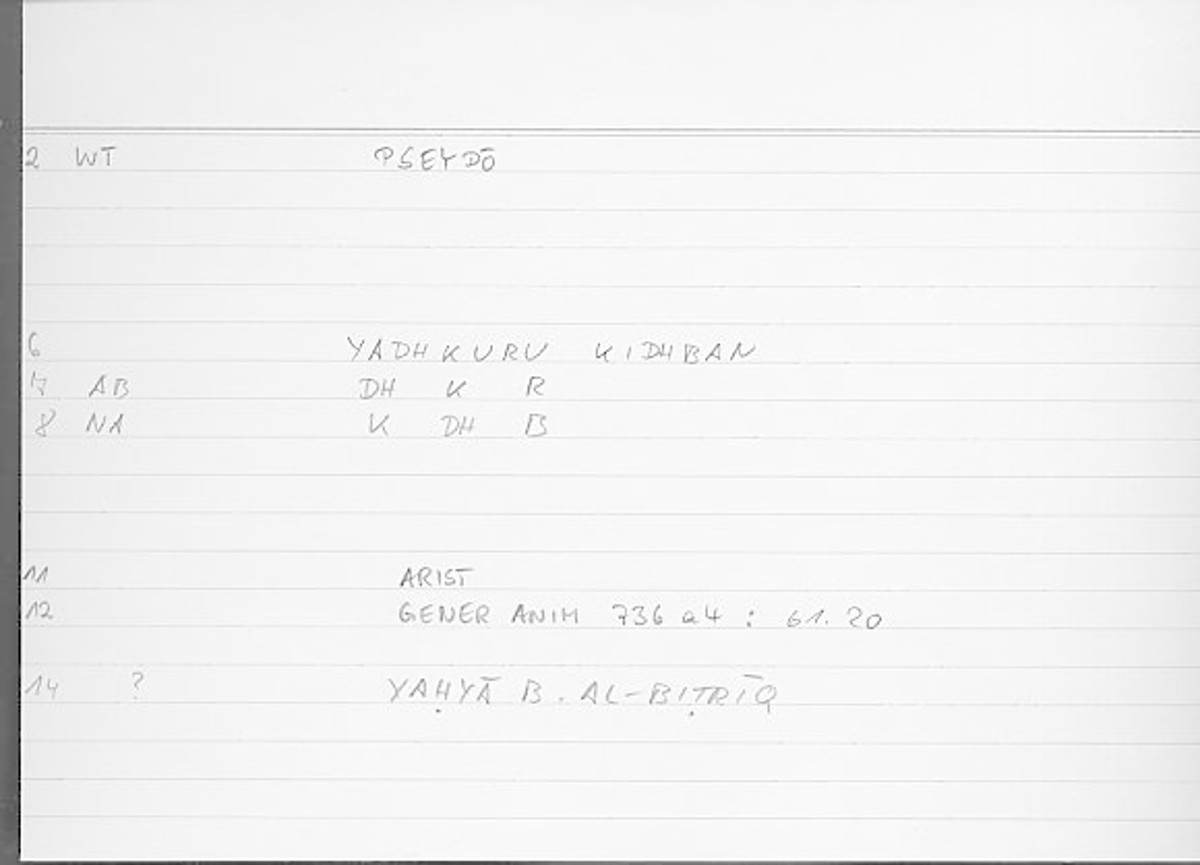 2 WT PSEYDŌ
6 YADHKURU KIDHBAN
7 AB DH K R
8 NA K DH B
11 ARIST
12 GENER ANIM 736 a4 : 61.20
14 ? YAḤYĀ B. AL-BIṬRĪQ